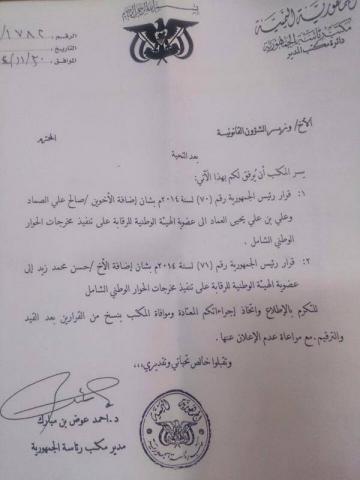 الجمهورية اليمنية
مكتب رئاسة الجمهورية
دائرة مكتب المدير
الرقم : ١٧٨٢/
التاريخ :
الموافق : ١١/٣٠/
الأخ/ وزير الشؤون القانونية
المحترم
بعد التحية
يسر المكتب أن يُرفق لكم بهذا الآتي:
١- قرار رئيس الجمهورية رقم (٧٠) لسنة ٢٠١٤م بشان إضافة الأخوين/صالح علي الصماد
وعلي بن علي يحيى العماد الى عضوية الهيئة الوطنية للرقابة على تنفيذ مخرجات الحوار
الوطني الشامل .
٢- قرار رئيس الجمهورية رقم (٧١) لسنة ٢٠١٤م بشان إضافة الأخ /حسن محمد زيد إلى
عضوية الهيئة الوطنية للرقابة على تنفيذ مخرجات الحوار الوطني الشامل
للتكرم بالإطلاع واتخاذ إجراءاتكم المعتادة وموافاة المكتب بنسخ من القرارين بعد القيد
والترقيم .مع مراعاة عدم الإعلان عنها .
وتقبلوا خالص تحياتي وتقديري،،،
د.احمد عوض بن مبارك
مدير مكتب رئاسة الجمهورية